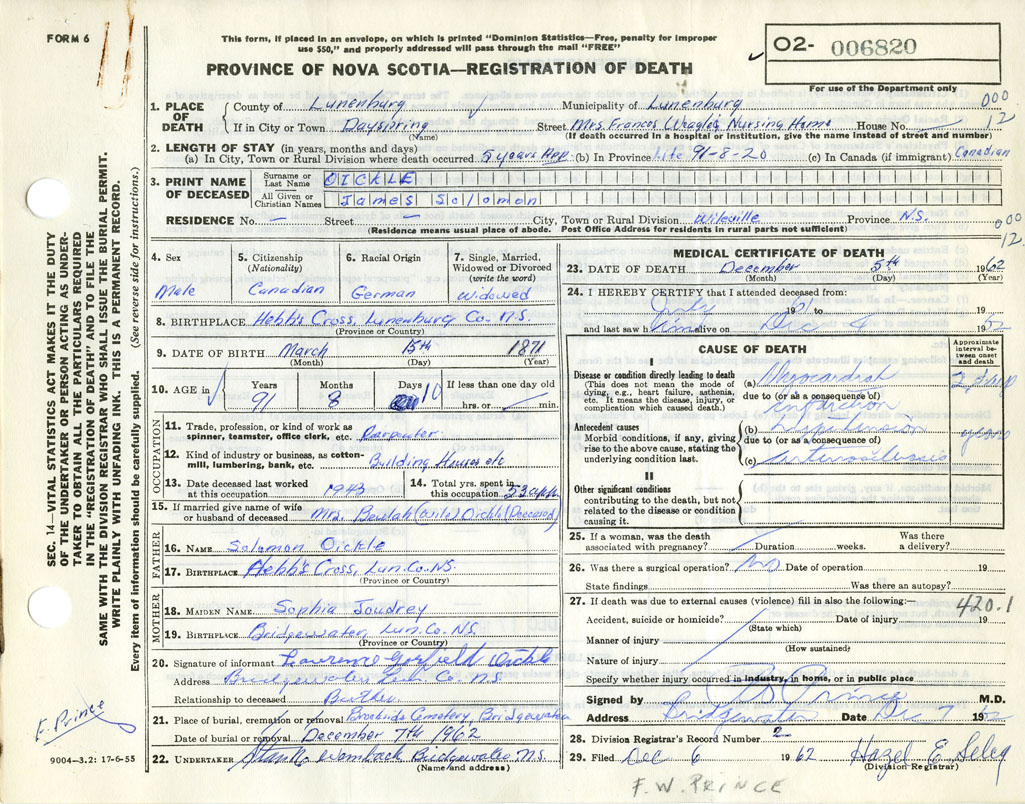 FORM 6
This form, if placed in an envelope, on which is printed "Dominion Statistics—Free, penalty for improper
use $50," and properly addressed will pass through the mail "FREE"
O2- 006820
For use of the Department only
PROVINCE OF NOVA SCOTIA—REGISTRATION OF DEATH
1. PLACE OF DEATH { County of Lunenburg Municipality of Lunenburg 000
If in City or Town Dayspring (Name) Street Mrs. Frances Nursing Home House No. — 12
(If death occurred in a hospital or institution, give the name instead of street and number)
2. LENGTH OF STAY (in years, months and days)
(a) In City, Town or Rural Division where death occurred 5 years App. (b) In Province Life 91-8-20 (c) In Canada (if immigrant) Canadian
3. PRINT NAME OF DECEASED { Surname or Last Name OICKLE
All Given or Christian Names James Solomon
RESIDENCE No. — Street — City, Town or Rural Division Wileville Province N.S. 000
(Residence means usual place of abode. Post Office Address for residents in rural parts not sufficient) 12
4. Sex Male
5. Citizenship (Nationality) Canadian
6. Racial Origin German
7. Single, Married, Widowed or Divorced (write the word) Widowed
8. BIRTHPLACE Hebb's Cross, Lunenburg Co. N.S.
(Province or Country)
9. DATE OF BIRTH March 15th 1871
(Month) (Day) (Year)
10. AGE in Years 91 Months 8 Days 10 If less than one day old hrs. or min.
OCCUPATION
11. Trade, profession, or kind of work as
spinner, teamster, office clerk, etc. Carpenter
12. Kind of industry or business, as cotton-
mill, lumbering, bank, etc. Building Houses etc
13. Date deceased last worked
at this occupation 1943
14. Total yrs. spent in
this occupation 53
15. If married give name of wife
or husband of deceased Mrs. Beulah (Wile) Oickle (Deceased)
FATHER
16. NAME Solomon Oickle
17. BIRTHPLACE Hebb's Cross, Lun. Co. N.S.
(Province or Country)
MOTHER
18. MAIDEN NAME Sophia Joudrey
19. BIRTHPLACE Bridgewater, Lun. Co. N.S.
(Province or Country)
20. Signature of informant Lawrence Garfield Oickle
Address Bridgewater Lun. Co. N.S.
Relationship to deceased Brother
21. Place of burial, cremation or removal Brookside Cemetery, Bridgewater
Date of burial or removal December 7th 1962
22. UNDERTAKER Womback Bridgewater N.S.
(Name and address)
MEDICAL CERTIFICATE OF DEATH
23. DATE OF DEATH December 5th 1962
(Month) (Day) (Year)
24. I HEREBY CERTIFY that I attended deceased from:
July 1951 to 19
and last saw him alive on Dec 4 1962
CAUSE OF DEATH
Approximate interval between onset and death
I
Disease or condition directly leading to death
(This does not mean the mode of
dying, e.g., heart failure, asthenia,
etc. It means the disease, injury, or
complication which caused death.)
(a) Myocardial 2 days
due to (or as a consequence of)
infarction
Antecedent causes
Morbid conditions, if any, giving
rise to the above cause, stating the
underlying condition last.
(b) Hypertension years
due to (or as a consequence of)
(c) arteriosclerosis
II
Other significant conditions
contributing to the death, but not
related to the disease or condition
causing it.
25. If a woman, was the death
associated with pregnancy? Duration weeks. Was there
a delivery?
26. Was there a surgical operation? No Date of operation 19
State findings Was there an autopsy?
27. If death was due to external causes (violence) fill in also the following:— 420.1
Accident, suicide or homicide? Date of injury 19
(State which)
Manner of injury
(How sustained)
Nature of injury
Specify whether injury occurred in industry, in home, or in public place
Signed by Prince M.D.
Address Bridgewater Date Dec 7 1962
28. Division Registrar's Record Number 2
29. Filed Dec 6 1962 Hazel E.
(Division Registrar)
F. W. PRINCE
SEC. 14—VITAL STATISTICS ACT MAKES IT THE DUTY
OF THE UNDERTAKER OR PERSON ACTING AS UNDER-
TAKER TO OBTAIN ALL THE PARTICULARS REQUIRED
IN THE "REGISTRATION OF DEATH" AND TO FILE THE
SAME WITH THE DIVISION REGISTRAR WHO SHALL ISSUE THE BURIAL PERMIT.
WRITE PLAINLY WITH UNFADING INK. THIS IS A PERMANENT RECORD.
Every item of information should be carefully supplied. (See reverse side for instructions.)
E. Prince
9004—3.2: 17-6-55